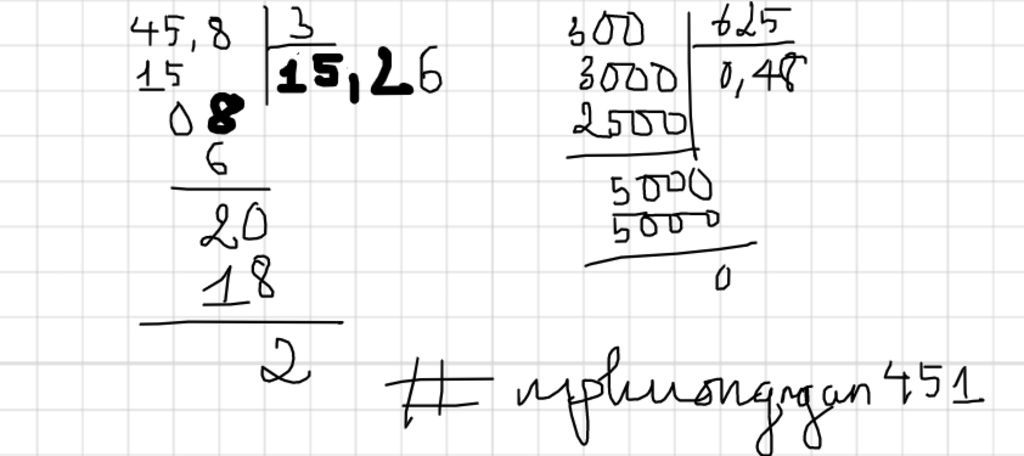 45,8 3
15 15,26
08
6
20
18
2
300 625
3000 0,48
2500
5000
5000
0
# nphuongngan451